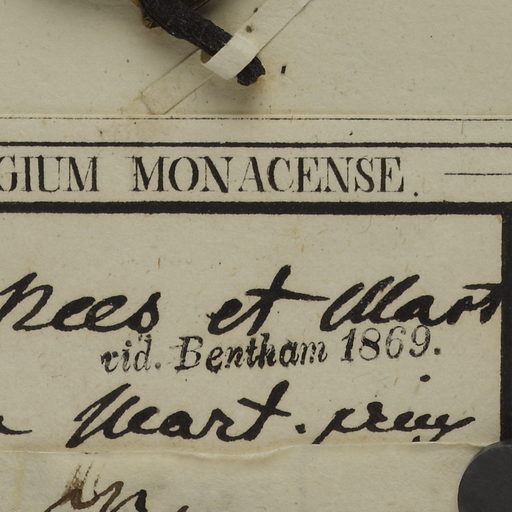 GIUM MONACENSE.
Nees et Mart
vid. Bentham 1869.
Mart. prin